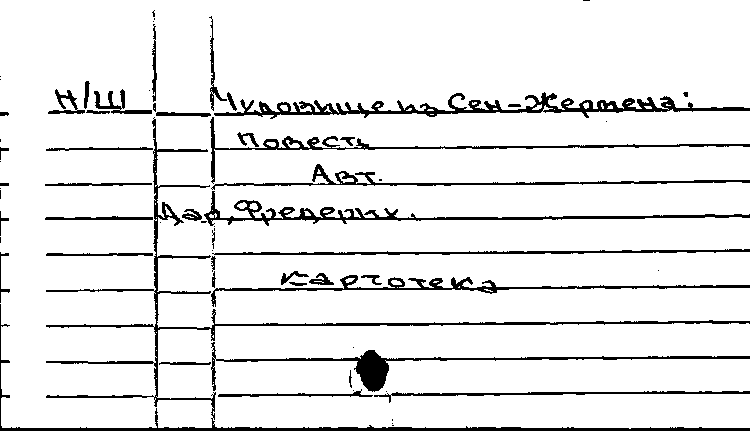 Н/Ш Чудовище из Сен-Жермена:
Повесть
Авт.
Дар, Фредерик.
Картотека